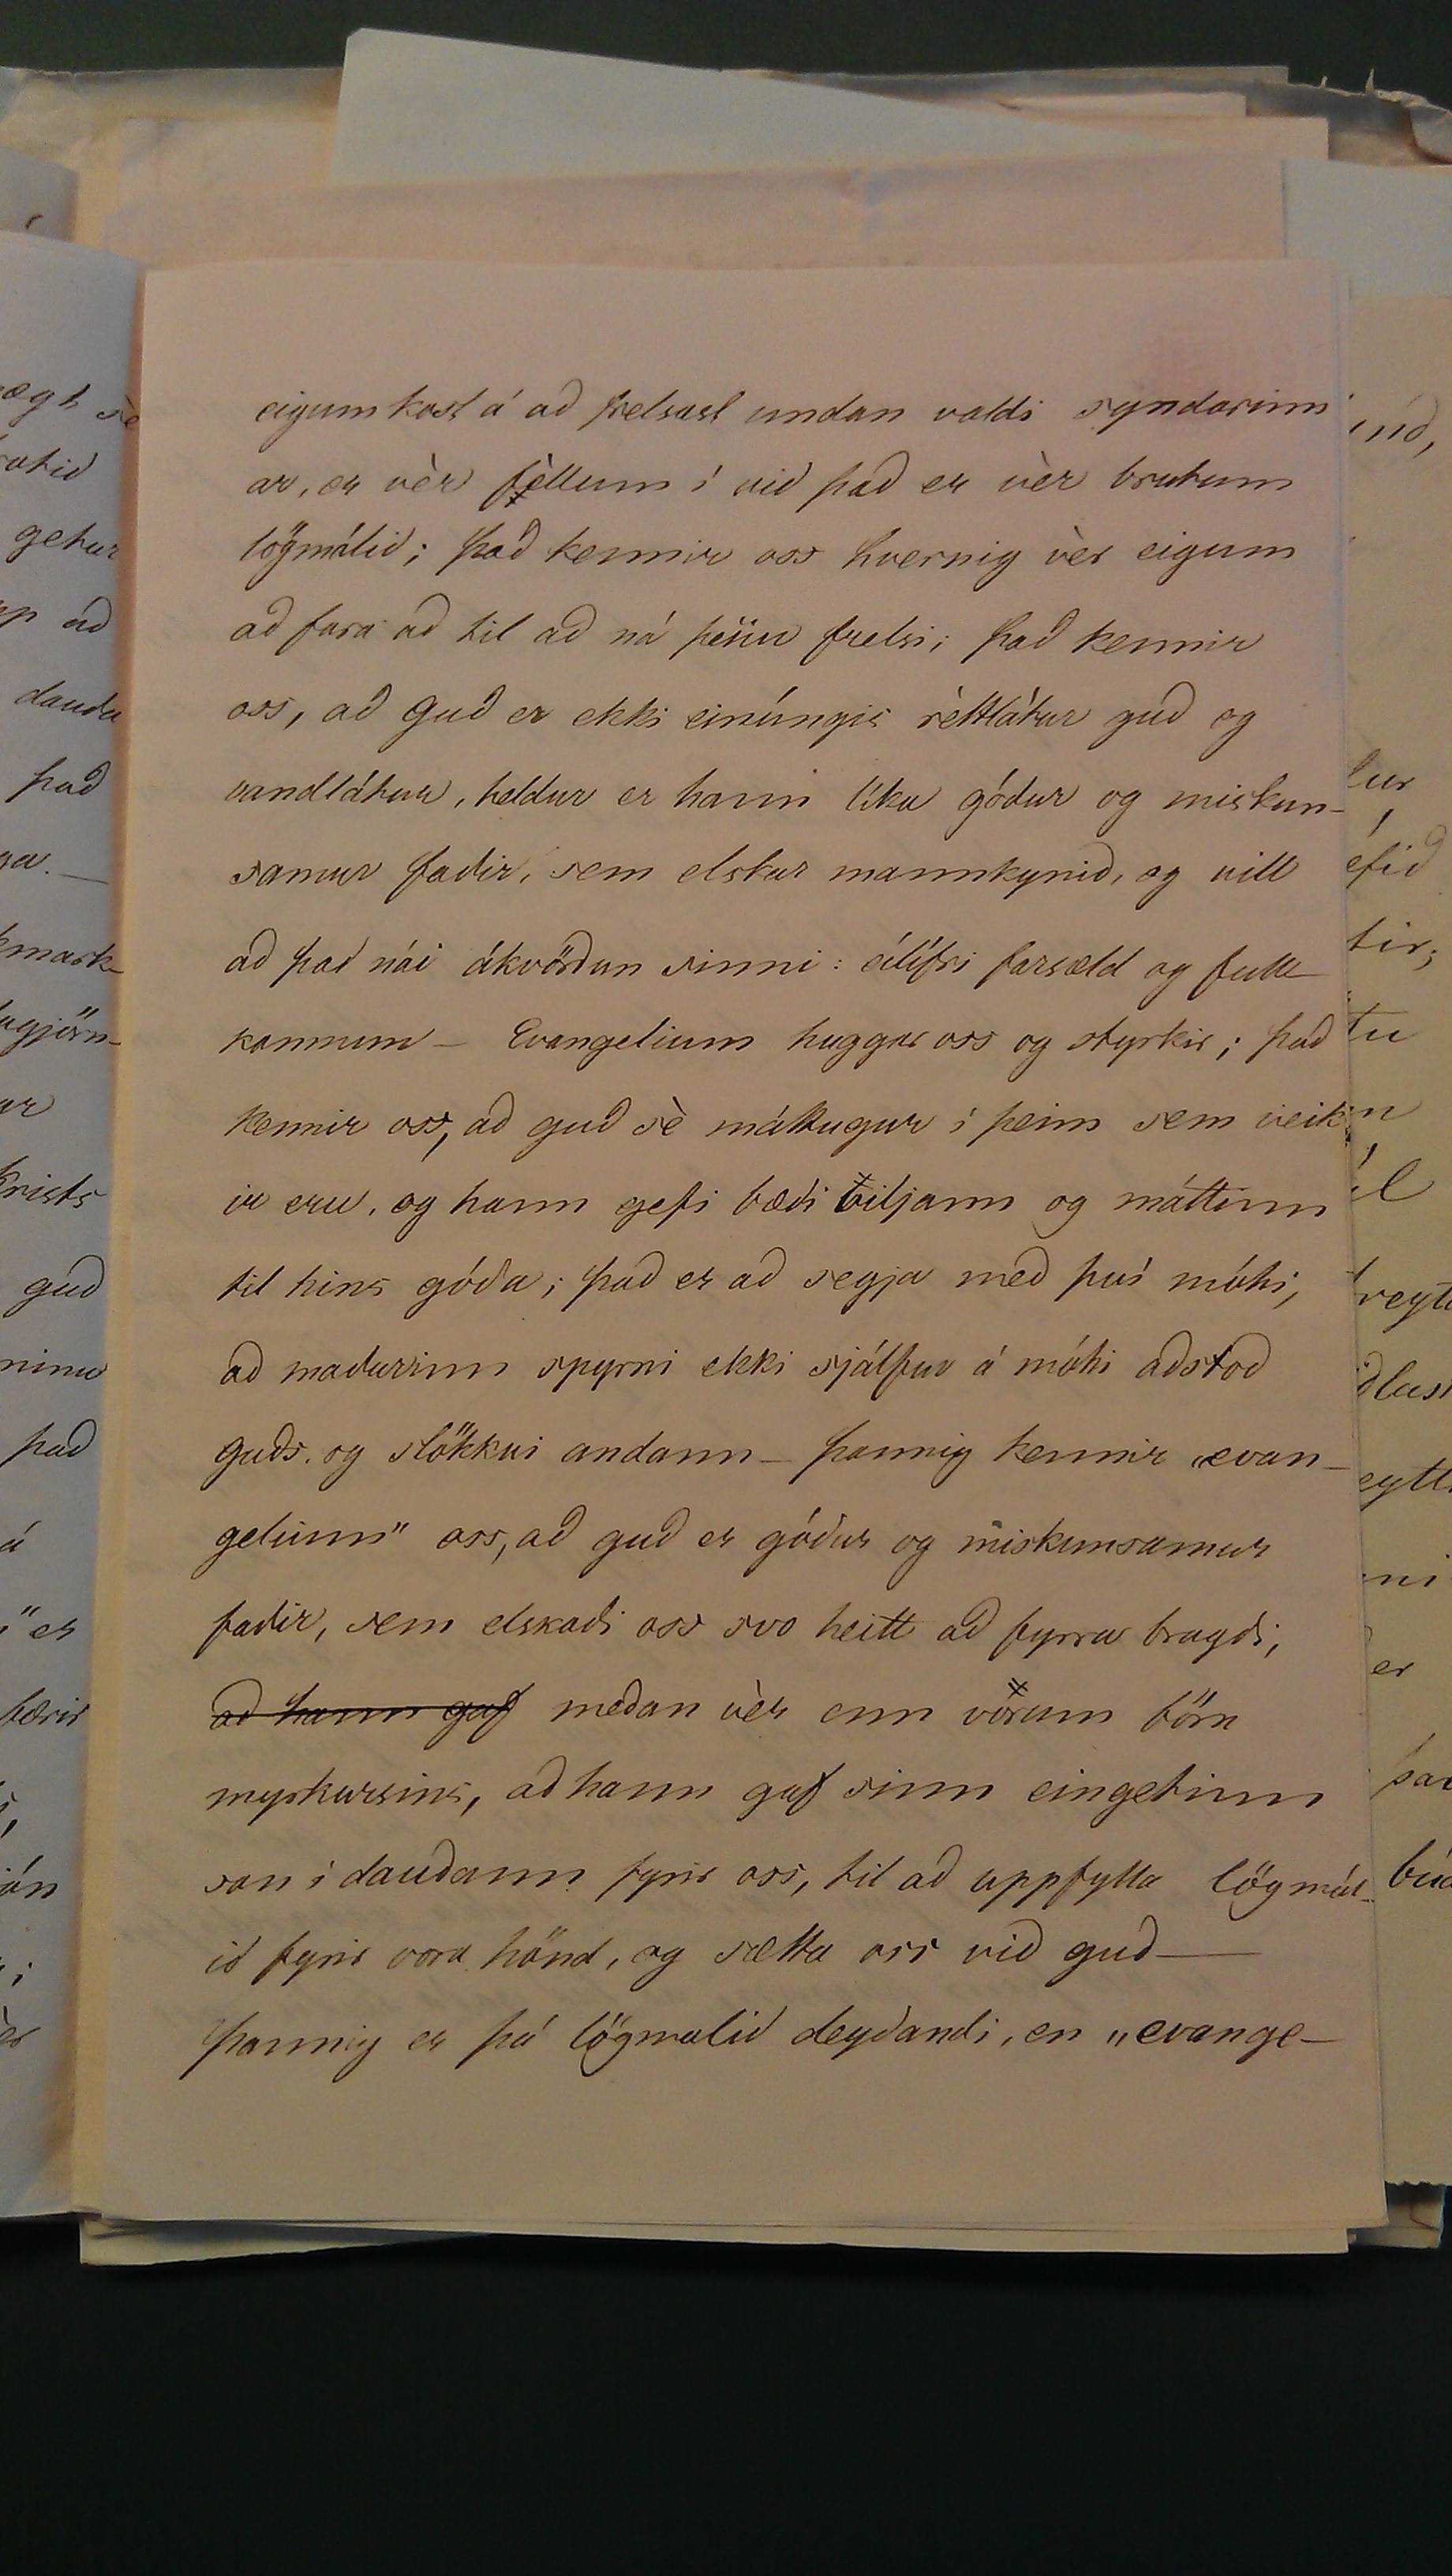 eigum kost á að frelsast undan valdi syndarinn
ar, er vèr fèllum í við það er vèr brutum
lögmálið; það kennir oss hvernig vèr eigum
að fara að til að ná þessu frelsi; það kennir
oss, að Guð er ekki einúngis rèttlátur guð og
vandlátur, heldur er hann líka góður og miskun-
samur faðir, sem elskar mannkynið, og vill
að það nái ákvörðun sinni: eilífri farsæld og full-
komnun — Evangelium huggar oss og styrkir; það
kennir oss, að guð sè máttugur í þeim sem veik
ir eru, og hann gefi bæði viljann og máttinn
til hins góða; það er að segja með því móti,
að maðurinn spyrni ekki sjálfur á móti aðstoð
guðs. og slökkvi andann — þannig kennir „evan-
gelium" oss, að guð er góður og miskunsamur
faðir, sem elskaði oss svo heitt að fyrra bragði,
að hann gaf meðan vèr enn vorum börn
myrkursins, að hann gaf sinn eingetinn
son í dauðann fyrir oss, til að uppfylla lögmál-
ið fyrir vora hönd, og sætta oss við guð —
þannig er þá lögmalið deyðandi, en „evange-